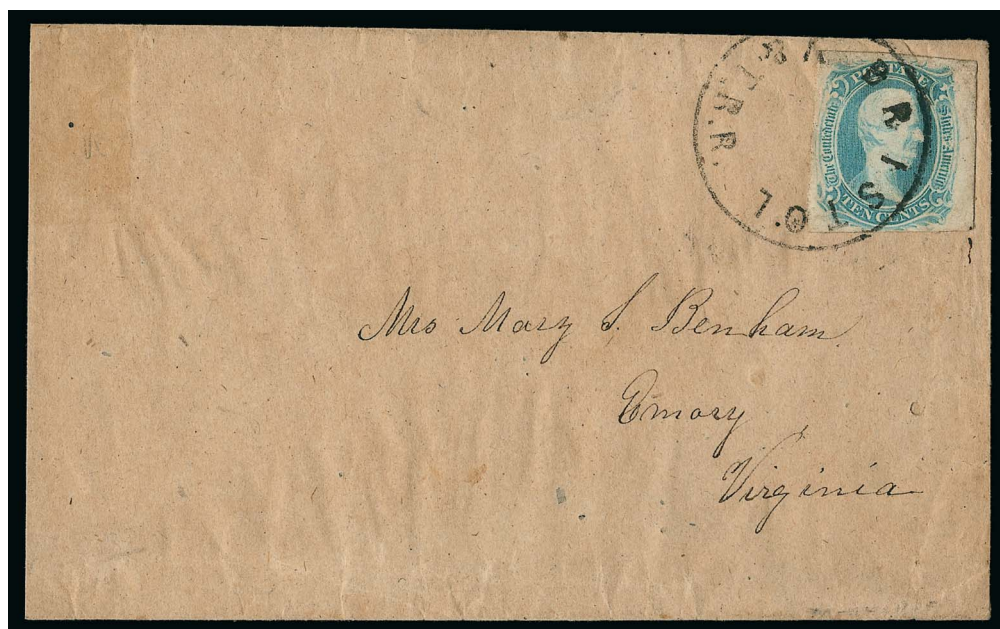 V. & T.R.R.
BRISTOL
POSTAGE
The Confederate States America
TEN CENTS
Mrs Mary S. Benham
Emory
Virginia